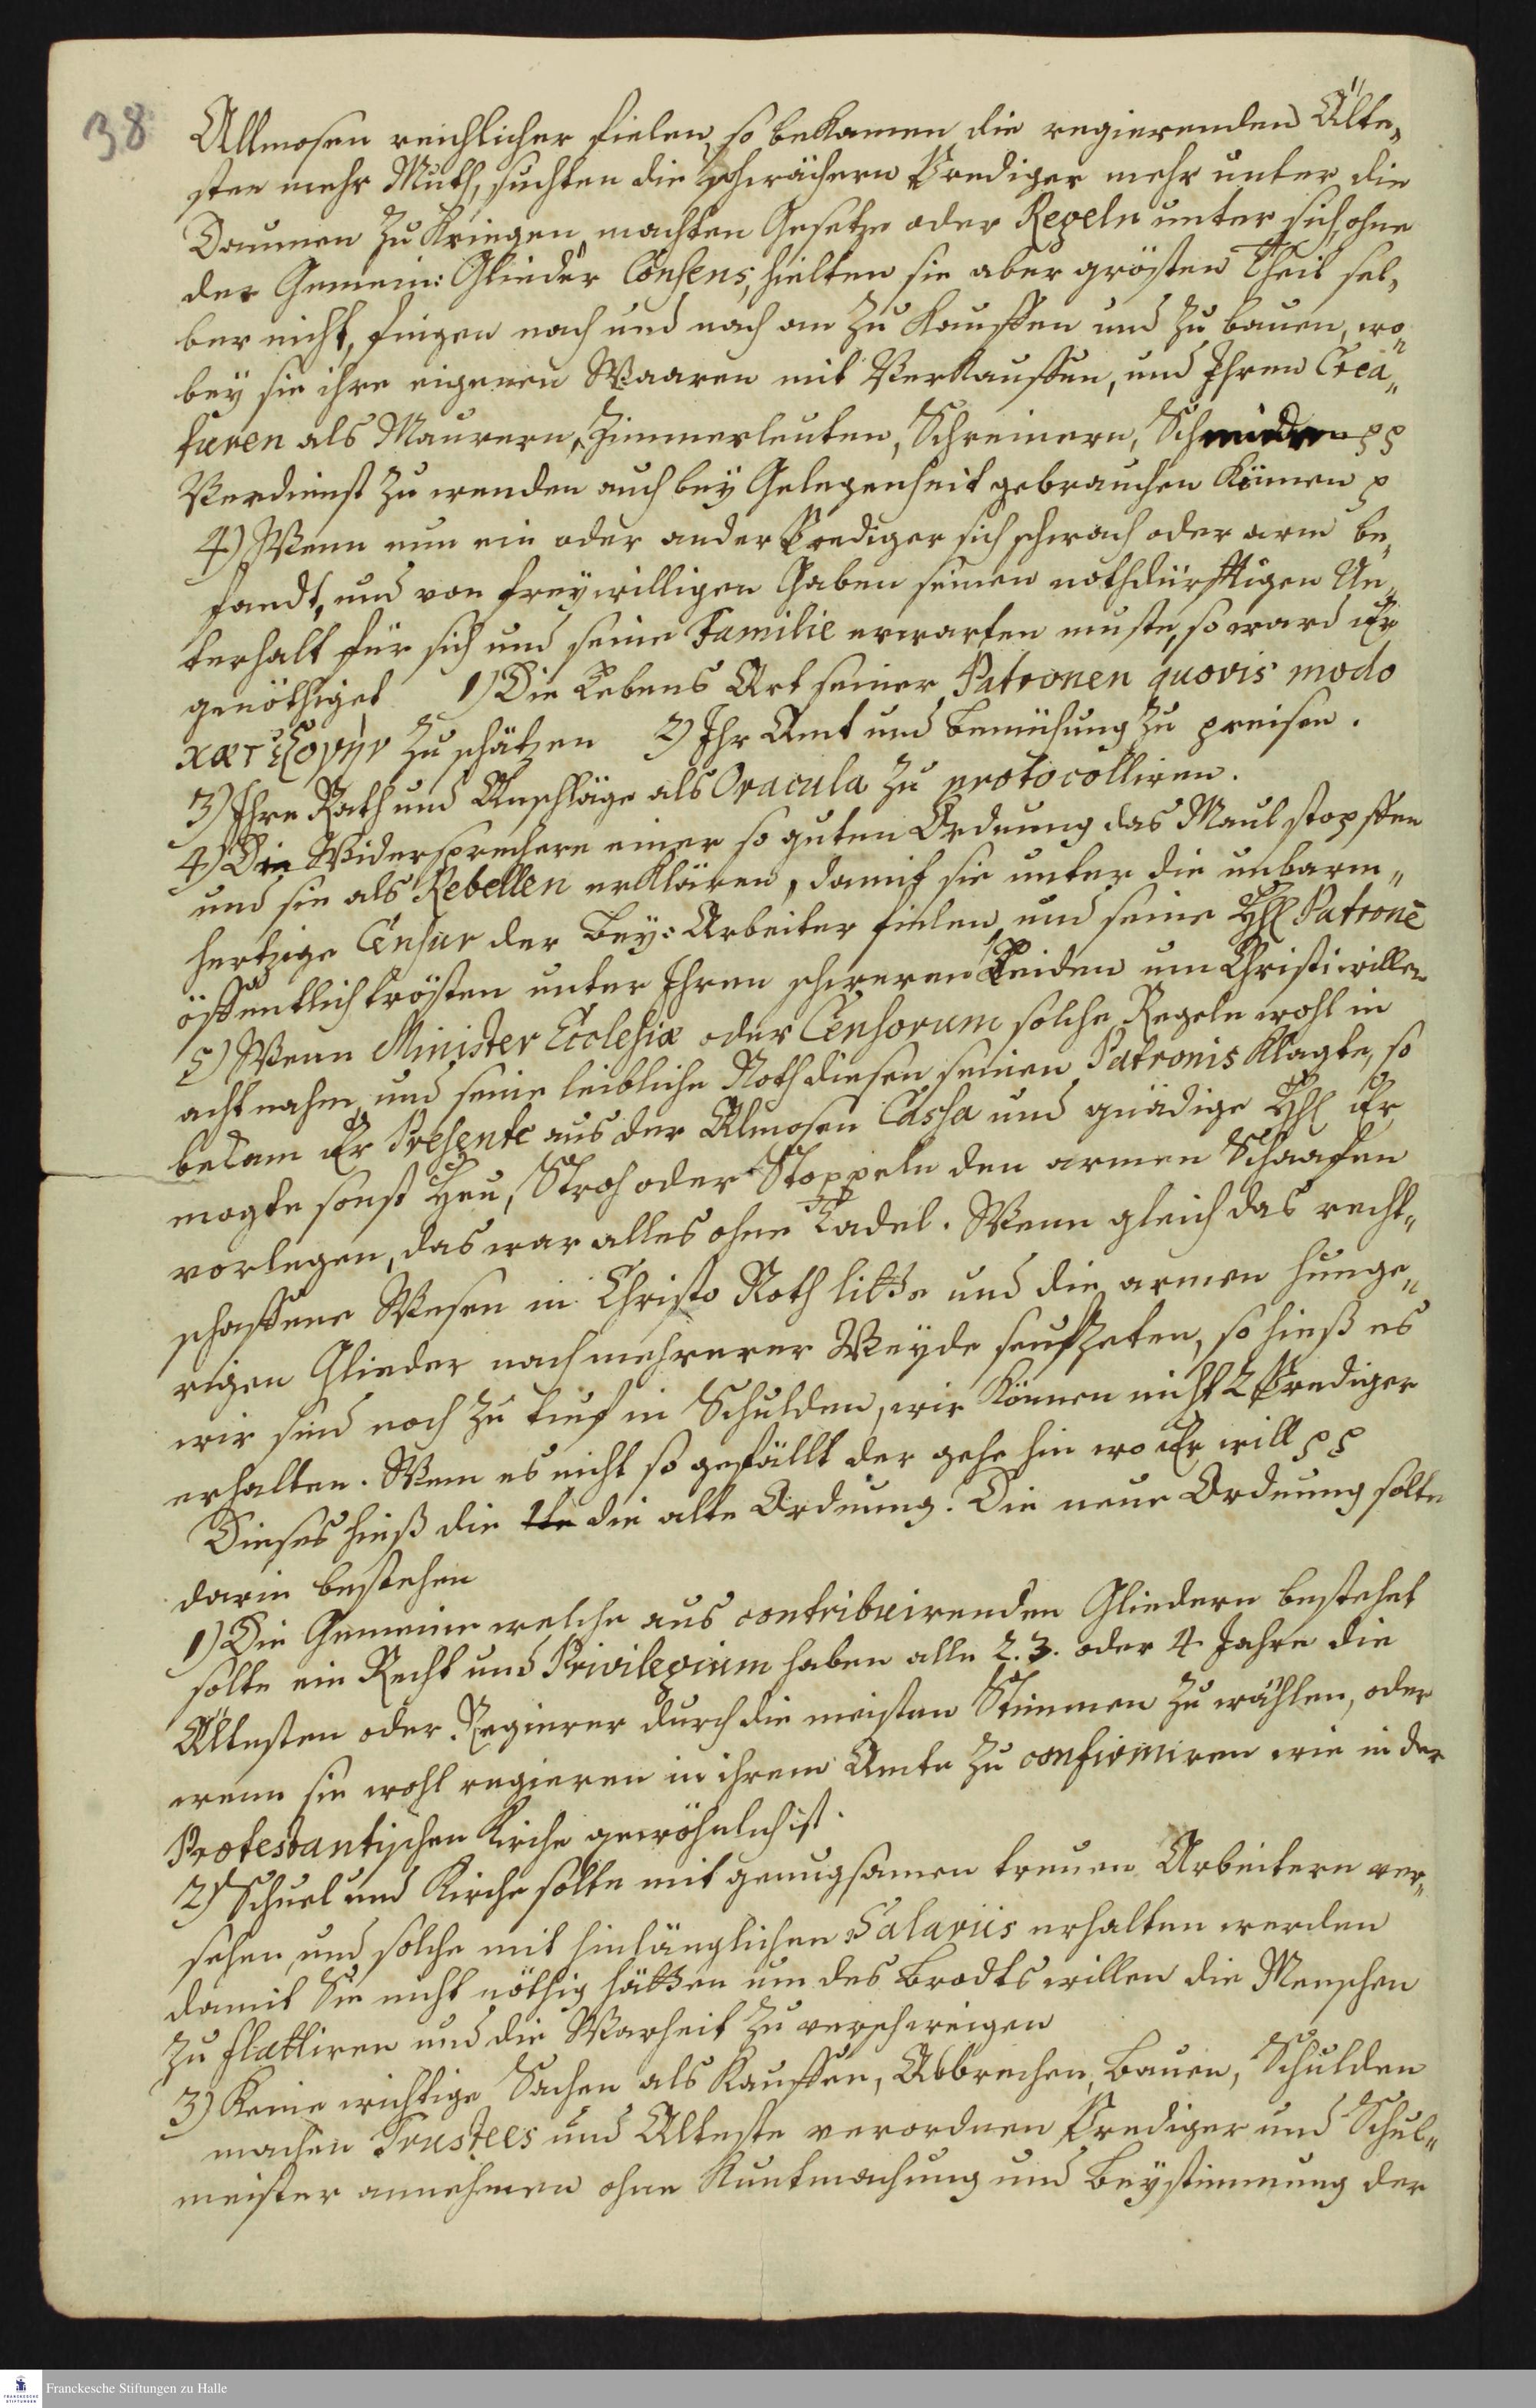 38
Allmosen reichlicher fielen, so bekamen die regierenden Älte„
sten mehr Muth, suchten die schwächern Prediger mehr unter die
Daumen zu kriegen, machten Gesetze oder Regeln unter sich, ohne
der Gemein: Glieder Consens, hielten sie aber grösten Theil sel„
ber nicht, fingen nach und nach an zu kauffen und zu bauen, wo„
bey sie ihre eigenen Waaren mit Verkauffen, und Ihren Crea„
turen als Maurern, Zimmerleuten, Schreinern, Schmieden pp
Verdienst zu wenden auch bey Gelegenheit gebrauchen können p
4) Wenn nun ein oder ander Prediger sich schwach oder arm be„
fandt, und von freywilligen Gaben seinen nothdürfftigen Un„
terhalt für sich und seine Familie erwarten muste, so ward Er
genöthiget 1) Die Lebens Art seiner Patronen quovis modo
κατ ἐξοχὴν zu schätzen 2) Ihr Amt und Bemühung zu preisen.
3) Ihre Rath und Anschläge als Oracula zu protocolliren.
4) Die Widersprechere einer so guten Ordnung das Maul stopffen
und sie als Rebellen erklären, damit sie unter die unbarm„
hertzige Censur der Bey: Arbeiter fielen, und seine HhE Patronē
öffentlich trösten unter Ihren schweren Leiden um Christi willen
5) Wenn Minister Ecclesiæ oder Censorum solche Regeln wohl in
acht nahm, und seine leibliche Noth diesen seinen Patronis klagte, so
bekam Er Presente aus der Almosen Cassa und gnädige HhE Er
mogte sonst Heu, Stroh oder Stoppeln den armen Schaafen
vorlegen, das war alles ohne Tadel. Wenn gleich das recht„
schaffene Wesen in Christo Noth litte und die armen hunge„
rigen Glieder nach mehrerer Weyde seufzeten, so hieß es
wir sind noch zu tief in Schulden, wir können nicht 2 Prediger
erhalten. Wem es nicht so gefällt der gehe hin wo Er will pp
Dieses hieß die 1te die alte Ordnung. Die neue Ordnung solte
darin bestehen
1) Die Gemeine welche aus contribuirenden Gliedern bestehet
solte ein Recht und Privilegium haben alle 2. 3. oder 4 Jahre die
Ältesten oder Regierer durch die meisten Stimmen zu wählen, oder
wenn sie wohl regieren in ihrem Amte zu confirmiren wie in der
Protestantischen Kirche gewöhnlich ist.
2) Schuel und Kirche solte mit genugsamen treuen Arbeitern ver„
sehen, und solche mit hinlänglichen Salariis erhalten werden
damit Sie nicht nöthig hätten um des Brodts willen die Menschen
zu flattiren und die Warheit zu verschweigen
3) Keine wichtige Sachen als Kauffen, Abbrechen, Bauen, Schulden
machen Trustees und Alteste verordnen Prediger und Schul„
meister annehmen ohne Kuntmachung und Beystimmung der
Franckesche Stiftungen zu Halle